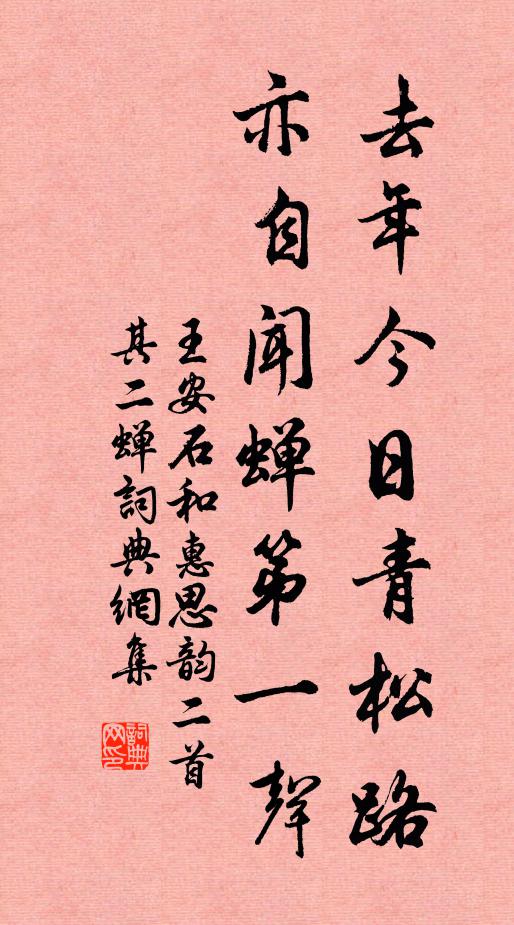 去年今日青松路
亦自闻蝉第一聲
王安石和惠思韵二首
其二蝉詞典網集
詞典
网印